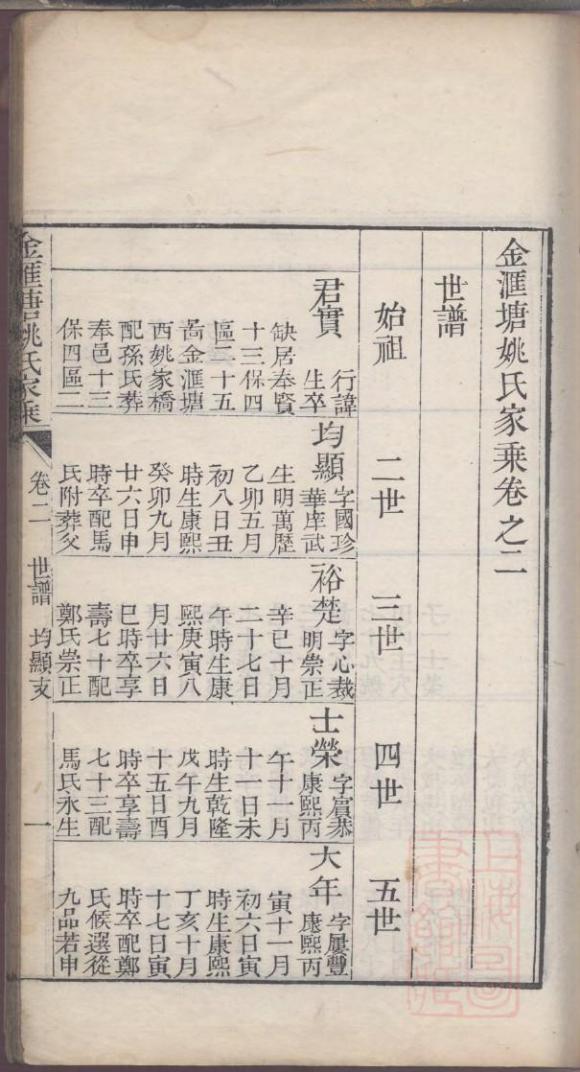 金滙塘姚氏家乘卷之二
世譜
始祖
二世
三世
四世
五世
君實
行諱
生卒
缺居奉賢
十三保四
區二十五
啚金滙塘
西姚家橋
配孫氏葬
奉邑十三
保四區二
均顯
字國珍
華庠武
生明萬歷
乙卯五月
初八日丑
時生康熙
癸卯九月
廿六日申
時卒配馬
氏附葬父
裕楚
字心裁
明崇正
辛巳十月
二十七日
午時生康
熙庚寅八
月廿六日
巳時卒享
壽七十配
鄭氏崇正
士榮
字賓恭
康熙丙
午十一月
十一日未
時生乾隆
戊午九月
十五日酉
時卒享壽
七十三配
馬氏永生
大年
字屢豐
康熙丙
寅十一月
初六日寅
時生康熙
丁亥十月
十七日寅
時卒配鄭
氏候選從
九品若申
金匯塘姚氏家乘
卷二
世譜
均顯支
一